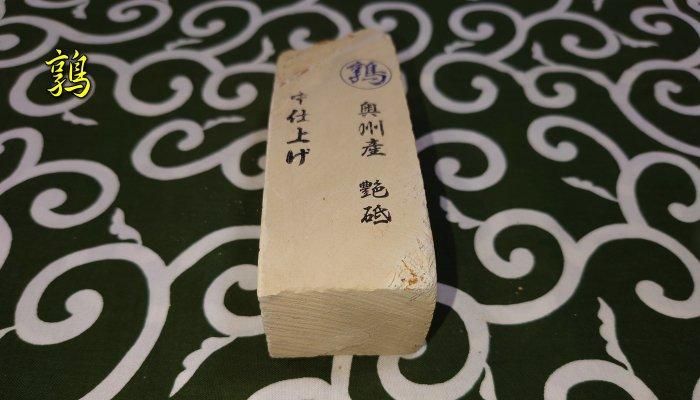 鶉
鶉
奥州産 艶砥
中仕上げ